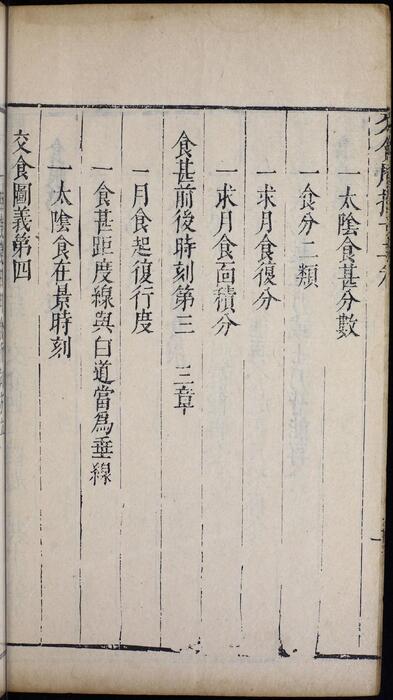 一太陰食甚分數
一食分二類
一求月食復分
一求月食面積分
食甚前後時刻第三 三章
一月食起復行度
一食甚距度線與白道當爲垂線
一太陰食在景時刻
交食圖義第四